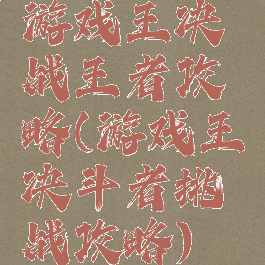 游戏王决
战王者攻
略(游戏王
决斗者挑
战攻略)